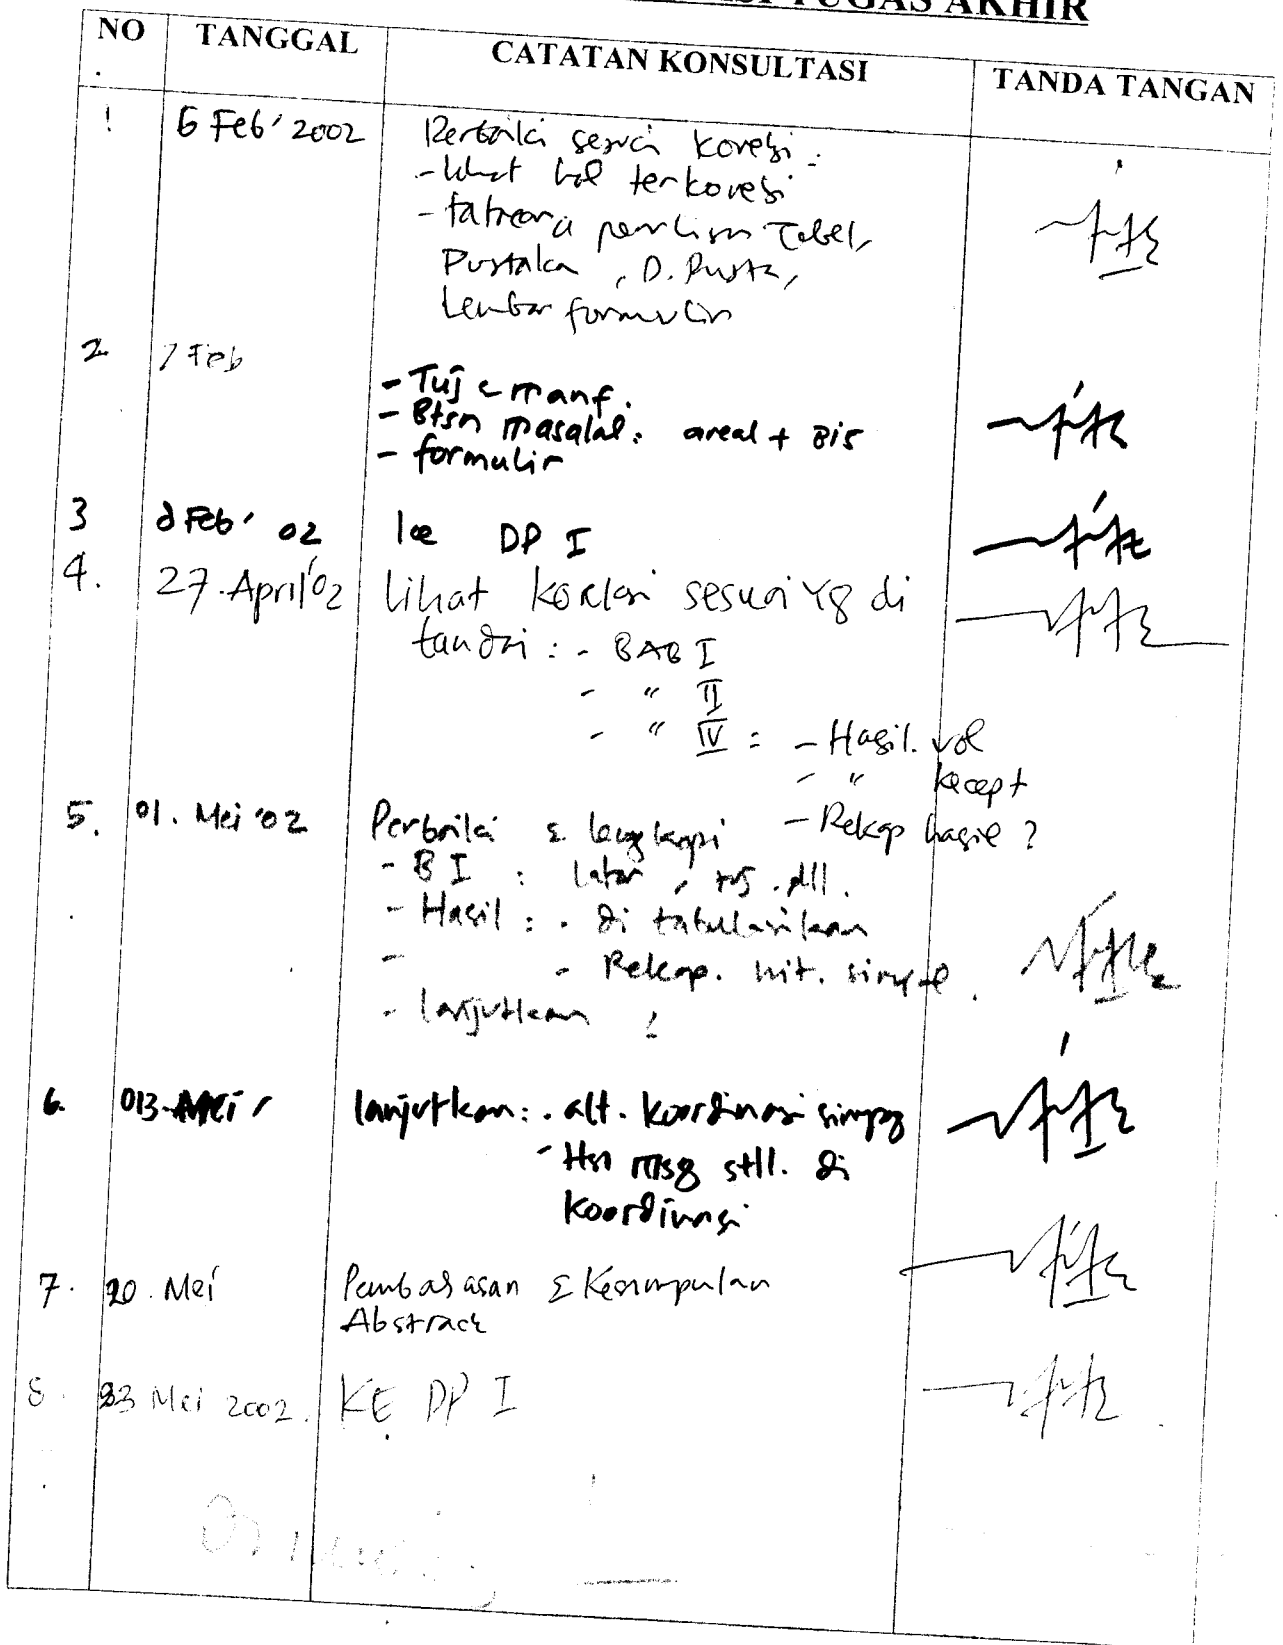 TUGAS AKHIR
NO. TANGGAL CATATAN KONSULTASI TANDA TANGAN
1 6 Feb' 2002 Perbaiki sesuai koreksi :
- lihat hal terkoreksi
- tatacara penulisan Tabel,
Pustaka, D. Pustk,
Lembar formulir
2. 7 Feb
- Tuj & manf.
- Btsn masalah : areal + Bis
- formulir
3 8 Feb' 02 ke DP I
4. 27. April'02 Lihat koreksi sesuai yg di
tandai : - BAB I
- " II
- " IV : - Hasil. vol
- " kecept
- Rekap hasil ?
5. 01. Mei '02 Perbaiki & lengkapi
- B I : latar, tuj. dll.
- Hasil : . di tabulasikan
- - Rekap. hit. simpul.
- lanjutkan !
6. 013 Mei ' lanjutkan : . alt. koordinasi simpg
- Hsl msg stll. di
koordinasi
7. 20. Mei Pembahasan & Kesimpulan
Abstrack
8. 23 Mei 2002. KE DP I